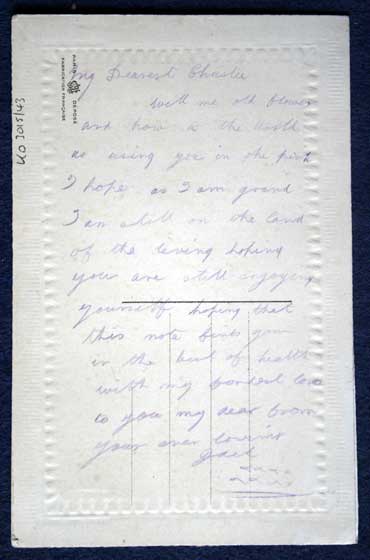 PARIS DEPOSE
FABRICATION FRANÇAISE
KO 3015/43
My Dearest Charlie
Well me old flower
and how is the world
as using you in the pink
I hope as I am grand
I am still on the land
of the living hoping
you are still enjoying
yourself hoping that
this note finds you
in the best of health
with my fondest love
to you my dear from
your ever loving
Jack